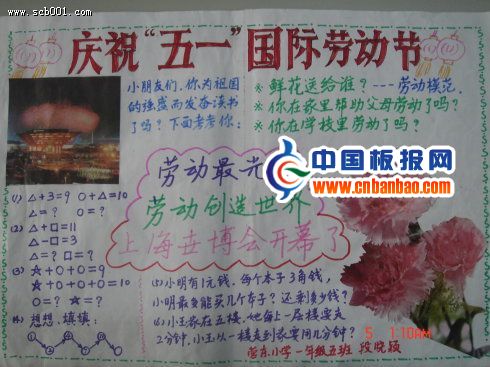 www.scb001.com
庆祝“五一”国际劳动节
小朋友们,你为祖国
的强盛而发奋读书
了吗?下面考考你:
※鲜花送给谁?---劳动模范
※你在家里帮助父母劳动了吗?
※你在学校里劳动了吗?
劳动最光
劳动创造世界
上海世博会开幕了
中国板报网
www.cnbanbao.com
(1) △+3=9 ○+△=10
△=? ○=?
(2) △+□=11
△-□=3
△=? □=?
(3) ☆+○+○=9
☆+☆+○+○+○=10
○=? ☆=?
(4) 想想,填填:
(5) 小明有1元钱,每个本子3角钱,
小明最多能买几个本子?还剩多少钱?
(6) 小玉家在五楼,她每上一层楼要走
2分钟,小玉从一楼走到家要用几分钟?
小学一年级五班 段晓颖
5 1:10AM